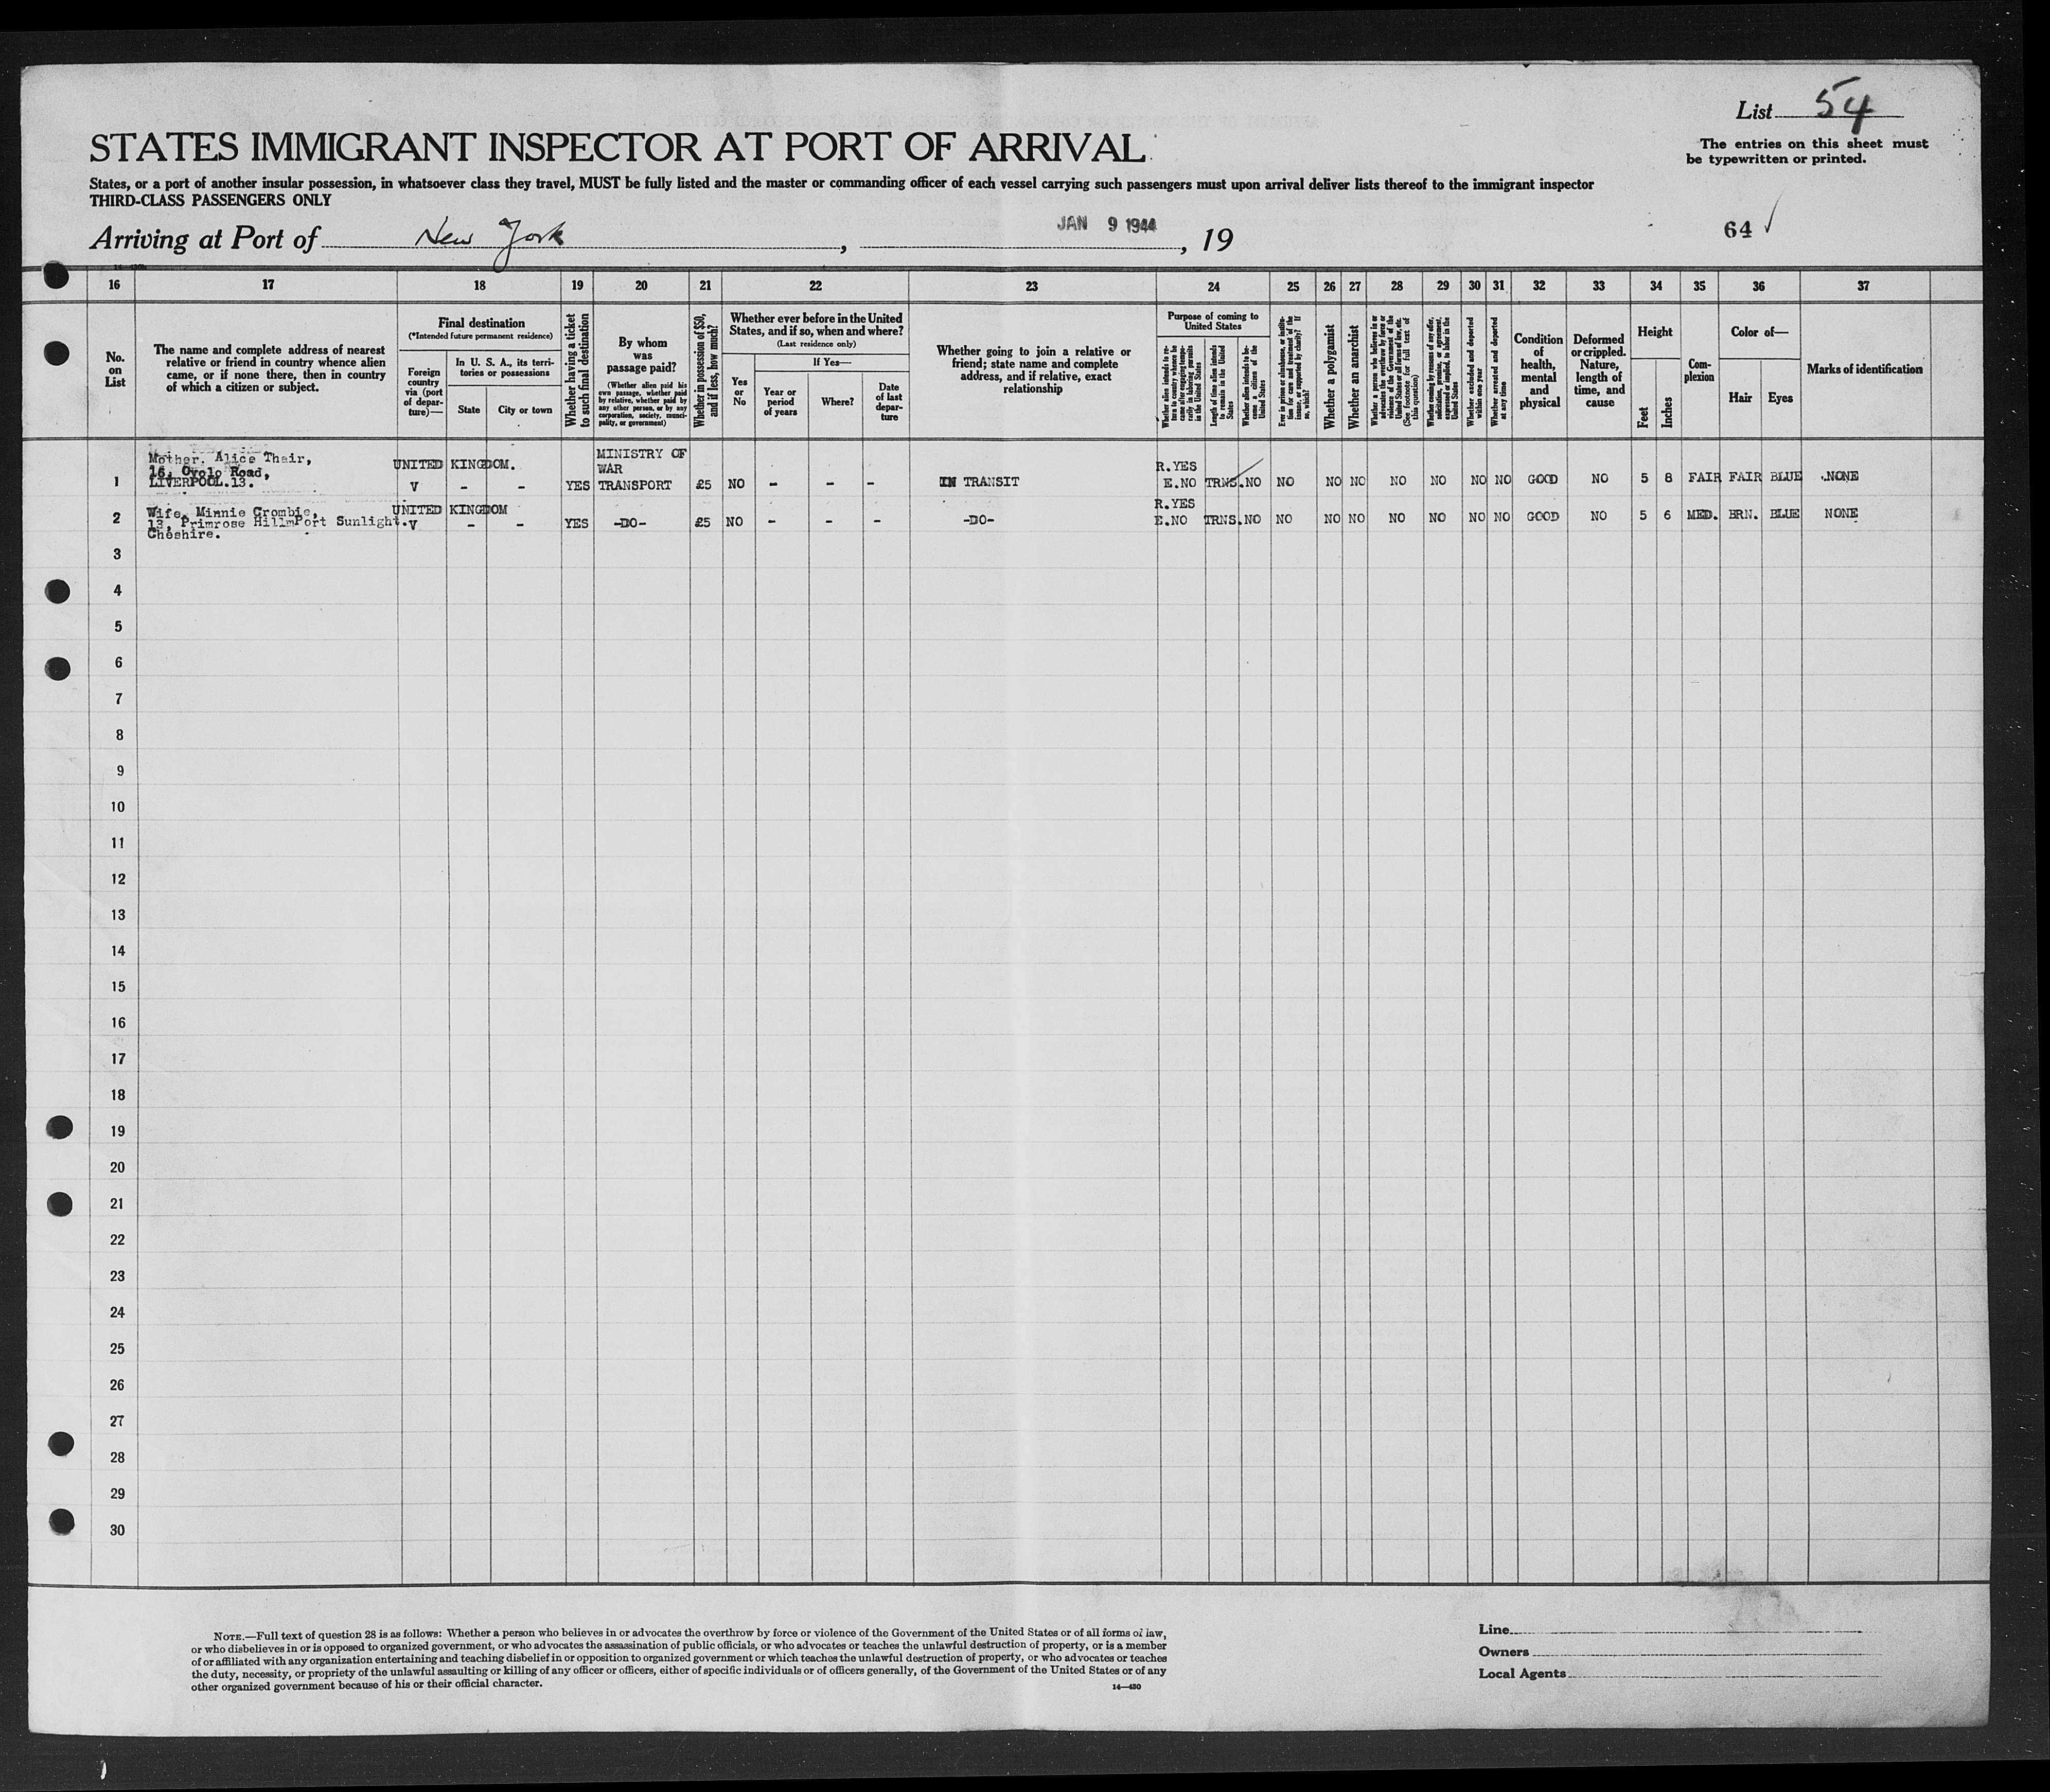 List 54
The entries on this sheet must
be typewritten or printed.
STATES IMMIGRANT INSPECTOR AT PORT OF ARRIVAL
States, or a port of another insular possession, in whatsoever class they travel, MUST be fully listed and the master or commanding officer of each vessel carrying such passengers must upon arrival deliver lists thereof to the immigrant inspector
THIRD-CLASS PASSENGERS ONLY
Arriving at Port of New York, JAN 9 1944, 19
64
16 17 18 19 20 21 22 23 24 25 26 27 28 29 30 31 32 33 34 35 36 37
No.
on
List
The name and complete address of nearest
relative or friend in country whence alien
came, or if none there, then in country
of which a citizen or subject.
Final destination
(*Intended future permanent residence)
Foreign
country
via (port
of depar-
ture)—
In U. S. A., its terri-
tories or possessions
State
City or town
Whether having a ticket
to such final destination
By whom
was
passage paid?
(Whether alien paid his
own passage, whether paid
by relative, whether paid by
any other person, or by any
corporation, society, munici-
pality, or government)
Whether in possession of $50,
and if less, how much?
Whether ever before in the United
States, and if so, when and where?
(Last residence only)
Yes
or
No
If Yes—
Year or
period
of years
Where?
Date
of last
depar-
ture
Whether going to join a relative or
friend; state name and complete
address, and if relative, exact
relationship
Purpose of coming to
United States
Whether alien intends to re-
turn to country whence he
came after engaging tempo-
rarily in laboring pursuits
in the United States
Length of time alien intends
to remain in the United
States
Whether alien intends to be-
come a citizen of the
United States
Ever in prison or almshouse, or institu-
tion for care and treatment of the
insane, or supported by charity? If
so, which?
Whether a polygamist
Whether an anarchist
Whether a person who believes in or
advocates the overthrow by force or
violence of the Government of the
United States or all forms of law, etc.
(See footnote for full text of
this question)
Whether coming by reason of any offer,
solicitation, promise, or agreement,
expressed or implied, to labor in the
United States
Whether excluded and deported
within one year
Whether arrested and deported
at any time
Condition
of
health,
mental
and
physical
Deformed
or crippled.
Nature,
length of
time, and
cause
Height
Feet
Inches
Com-
plexion
Color of—
Hair
Eyes
Marks of identification
1 Mother. Alice Thair,
16, Ovolo Road,
LIVERPOOL.13.
UNITED KINGDOM.
V - - YES
MINISTRY OF
WAR
TRANSPORT £5 NO - - - IN TRANSIT
R.YES
E.NO TRNS. NO NO NO NO NO NO NO NO GOOD NO 5 8 FAIR FAIR BLUE .NONE
2 Wife, Minnie Crombie,
13, Primrose HillmPort Sunlight.
Cheshire.
UNITED KINGDOM
V - - YES -DO- £5 NO - - - -DO-
R.YES
E.NO TRNS. NO NO NO NO NO NO NO NO GOOD NO 5 6 MED. BRN. BLUE NONE
3
4
5
6
7
8
9
10
11
12
13
14
15
16
17
18
19
20
21
22
23
24
25
26
27
28
29
30
NOTE.—Full text of question 28 is as follows: Whether a person who believes in or advocates the overthrow by force or violence of the Government of the United States or of all forms of law,
or who disbelieves in or is opposed to organized government, or who advocates the assassination of public officials, or who advocates or teaches the unlawful destruction of property, or is a member
of or affiliated with any organization entertaining and teaching disbelief in or opposition to organized government or which teaches the unlawful destruction of property, or who advocates or teaches
the duty, necessity, or propriety of the unlawful assaulting or killing of any officer or officers, either of specific individuals or of officers generally, of the Government of the United States or of any
other organized government because of his or their official character.
14—480
Line
Owners
Local Agents